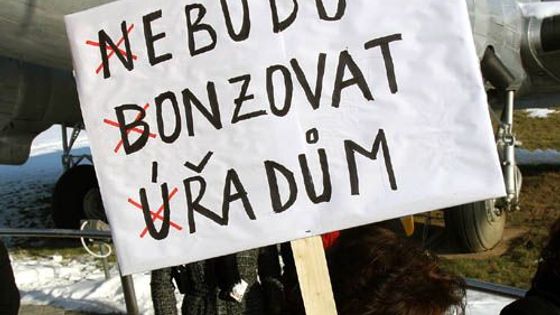 NEBUDU
BONZOVAT
ÚŘADŮM